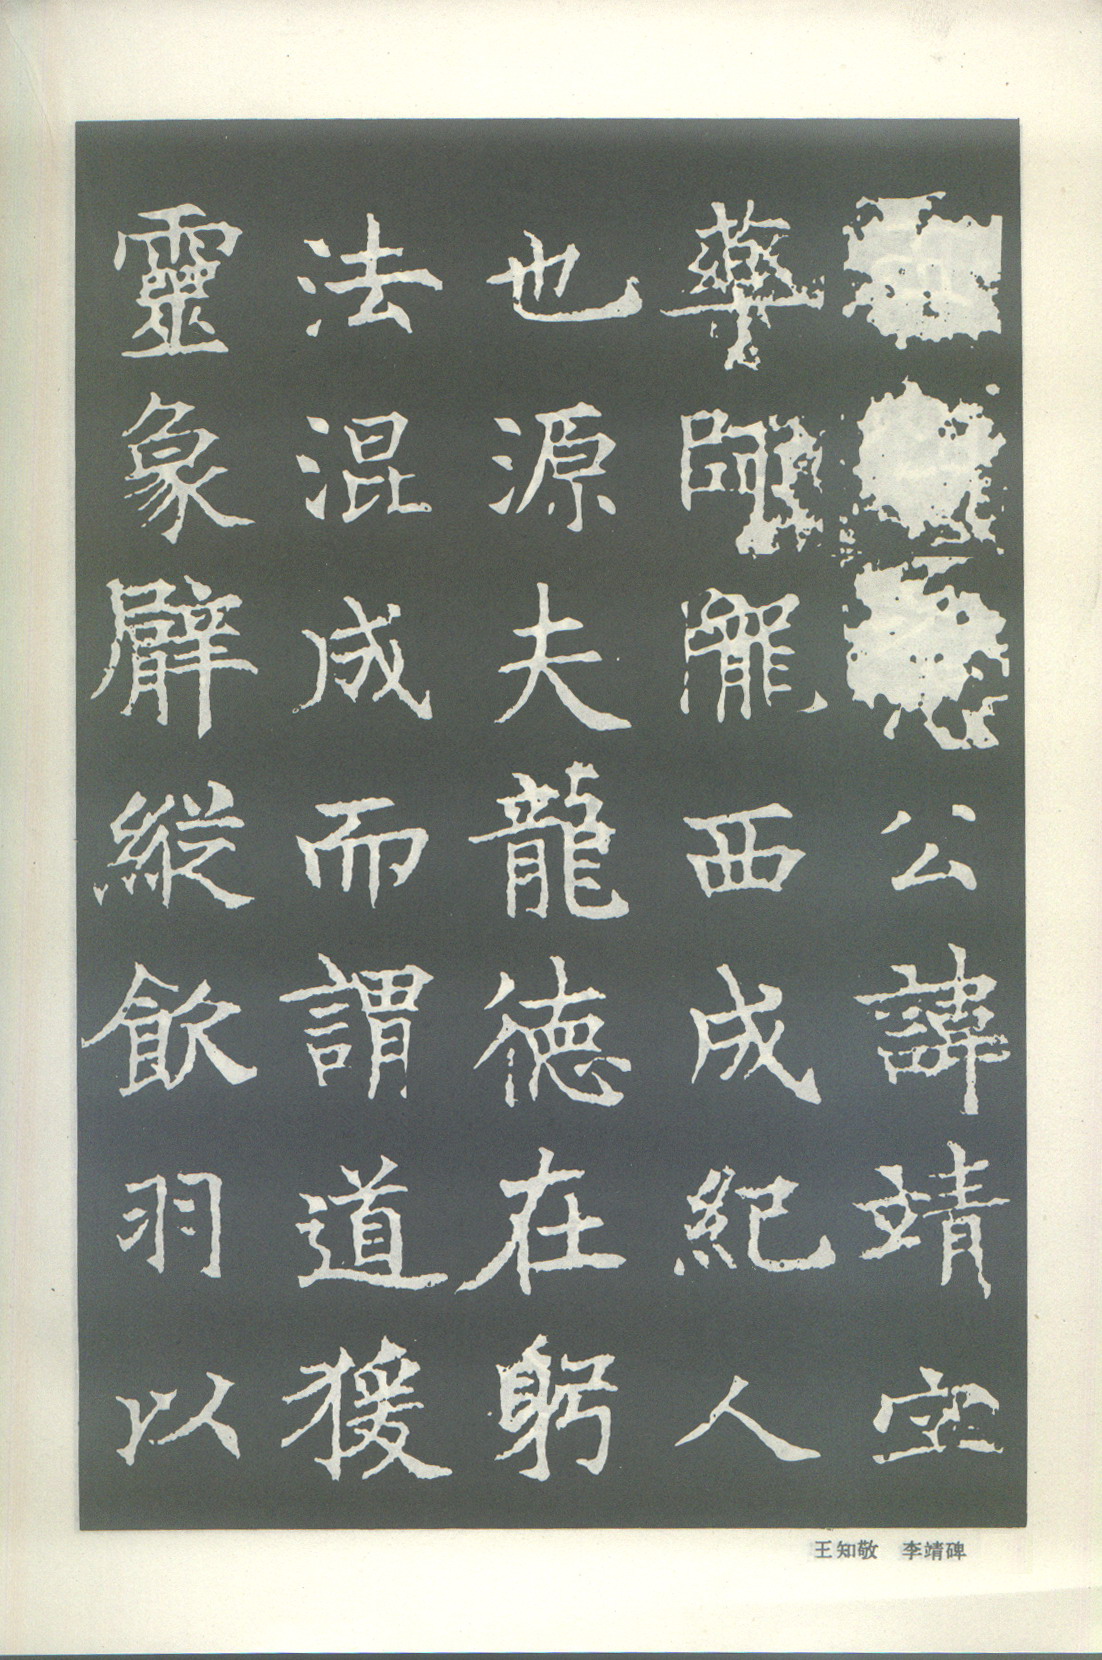 公諱靖字
藥師隴西成紀人
也源夫龍德在躬
法混成而謂道猨
靈象臂縱飲羽以
王知敬　李靖碑